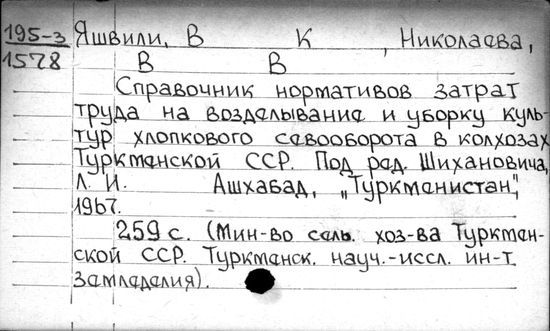 195-3
1578
Яшвили, В К , Николаева,
В В
Справочник нормативов затрат
труда на возделывание и уборку куль-
тур хлопкового севооборота в колхозах
Туркменской ССР. Под ред. Шихановича,
Л. И. Ашхабад, „Туркменистан",
1967.
259 с. (Мин-во сель. хоз-ва Туркмен-
ской ССР. Туркменск. науч.-иссл. ин-т
земледелия).